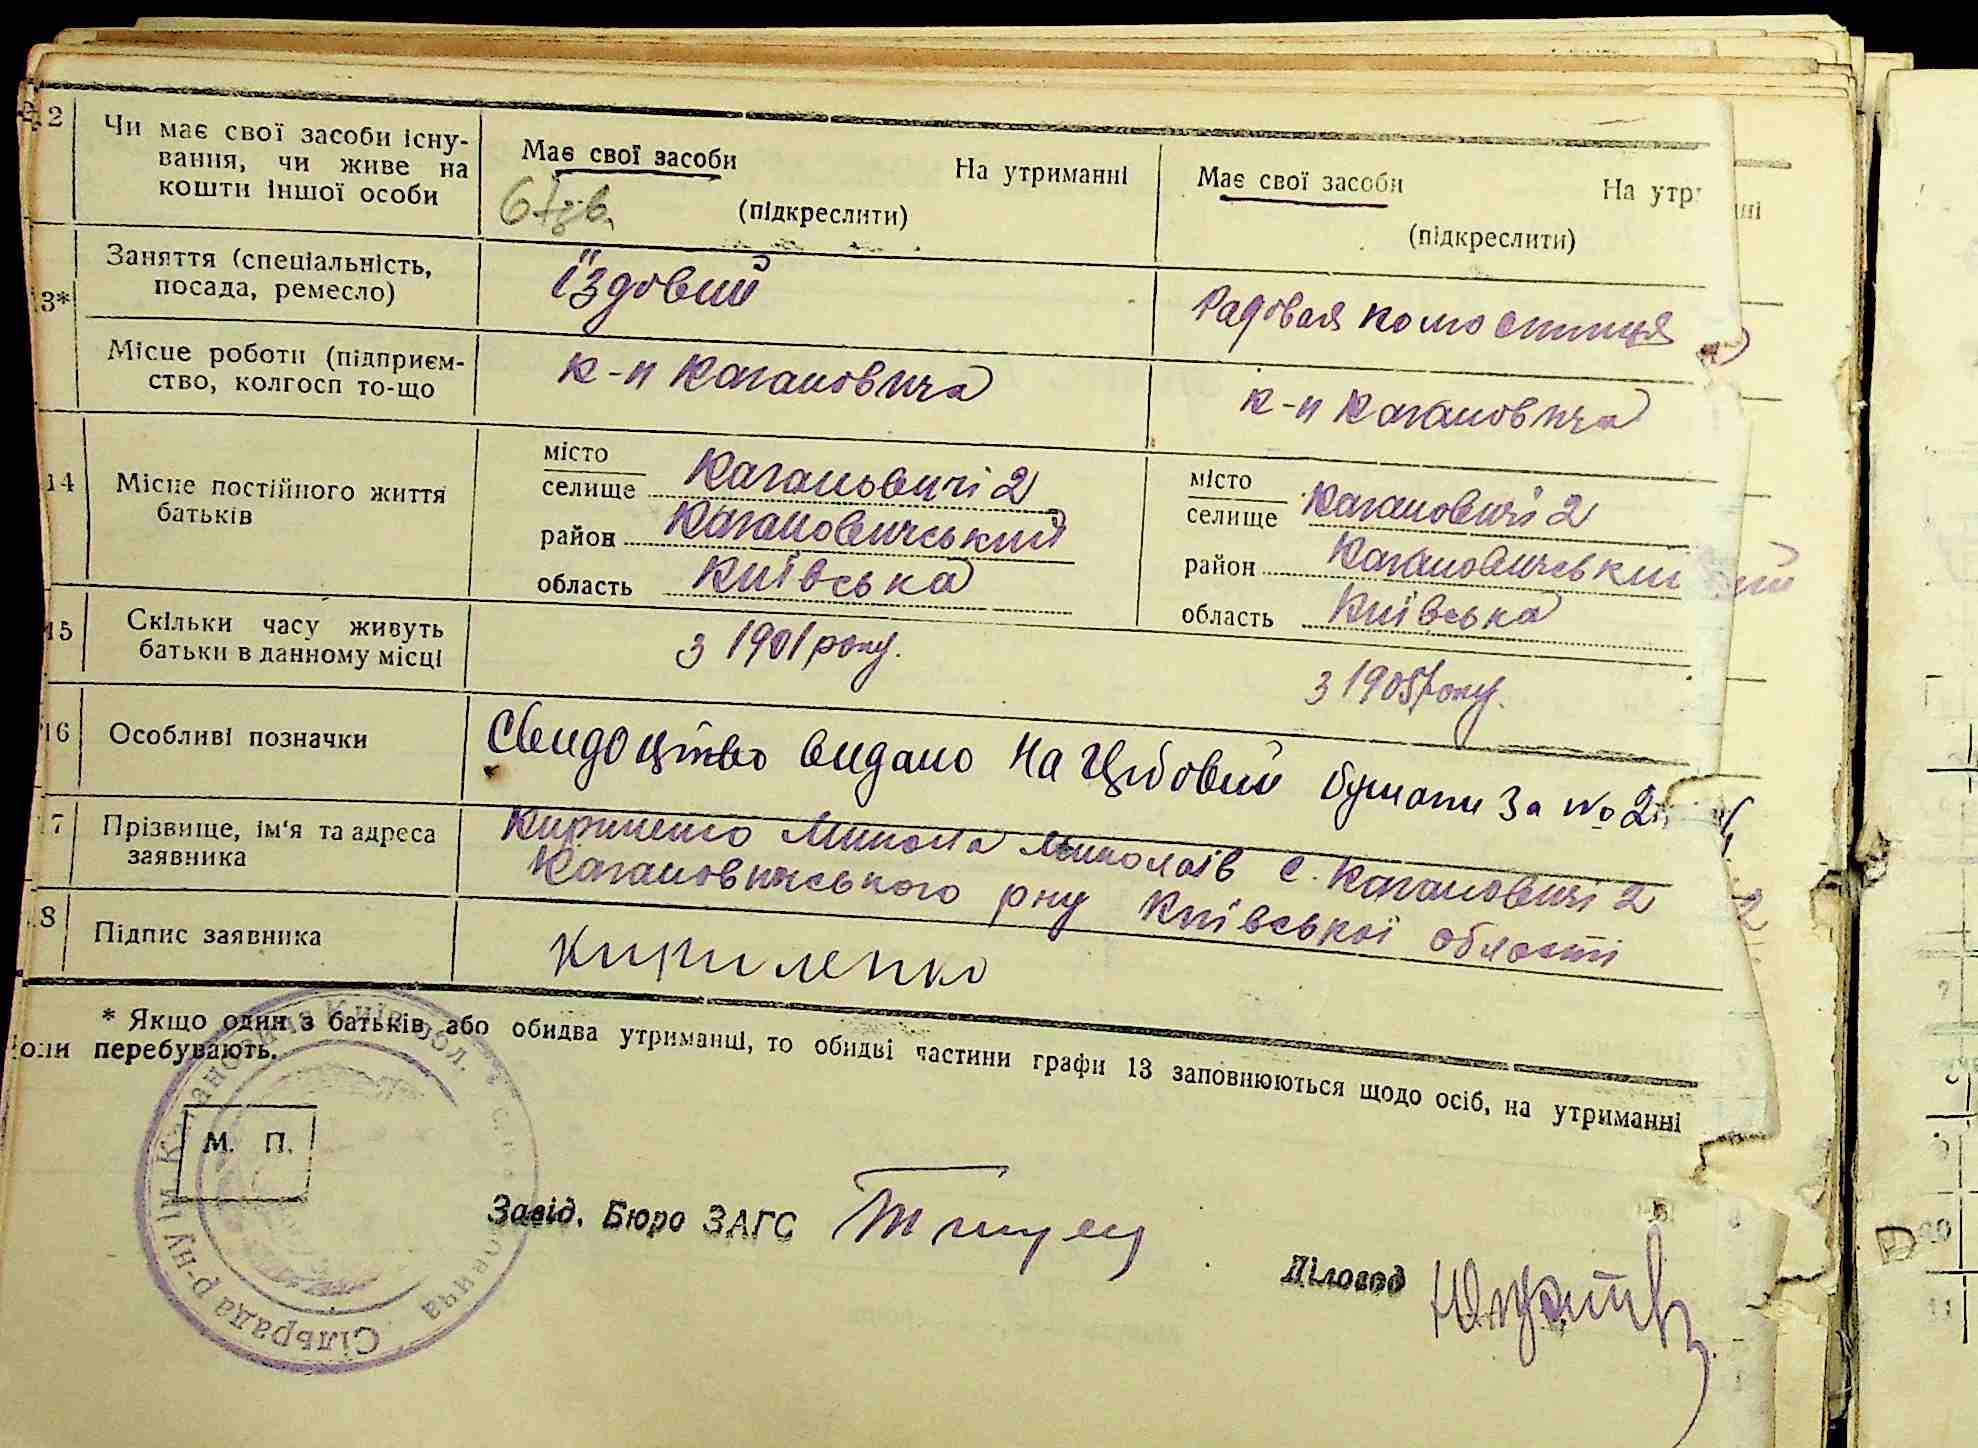 2
Чи має свої засоби існу-
вання, чи живе на
кошти іншої особи
Має свої засоби На утриманні
(підкреслити)
Має свої засоби На утр
(підкреслити)
13*
Заняття (спеціальність,
посада, ремесло)
їздовий
Місце роботи (підприєм-
ство, колгосп то-що
к-п Кагановича
к-п Кагановича
14
Місце постійного життя
батьків
місто
селище Кагановичі 2
район Кагановичський
область Київська
місто
селище Кагановичі 2
район Кагановичський
область Київська
15
Скільки часу живуть
батьки в данному місці
з 1901 року.
з 1905 року.
16
Особливі позначки
Свидоцтво видано на гербовий бумаги за №
17
Прізвище, ім'я та адреса
заявника
Кириленко Микола Миколаїв с. Кагановичі 2
Кагановичського рну Київської області
18
Підпис заявника
Кириленко
* Якщо один з батьків або обидва утриманці, то обидві частини графи 13 заповнюються щодо осіб, на утриманні
коли перебувають.
М. П.
Сільрада
р-ну ім Кагановича Київ. обл.
Завід. Бюро ЗАГС
Діловод